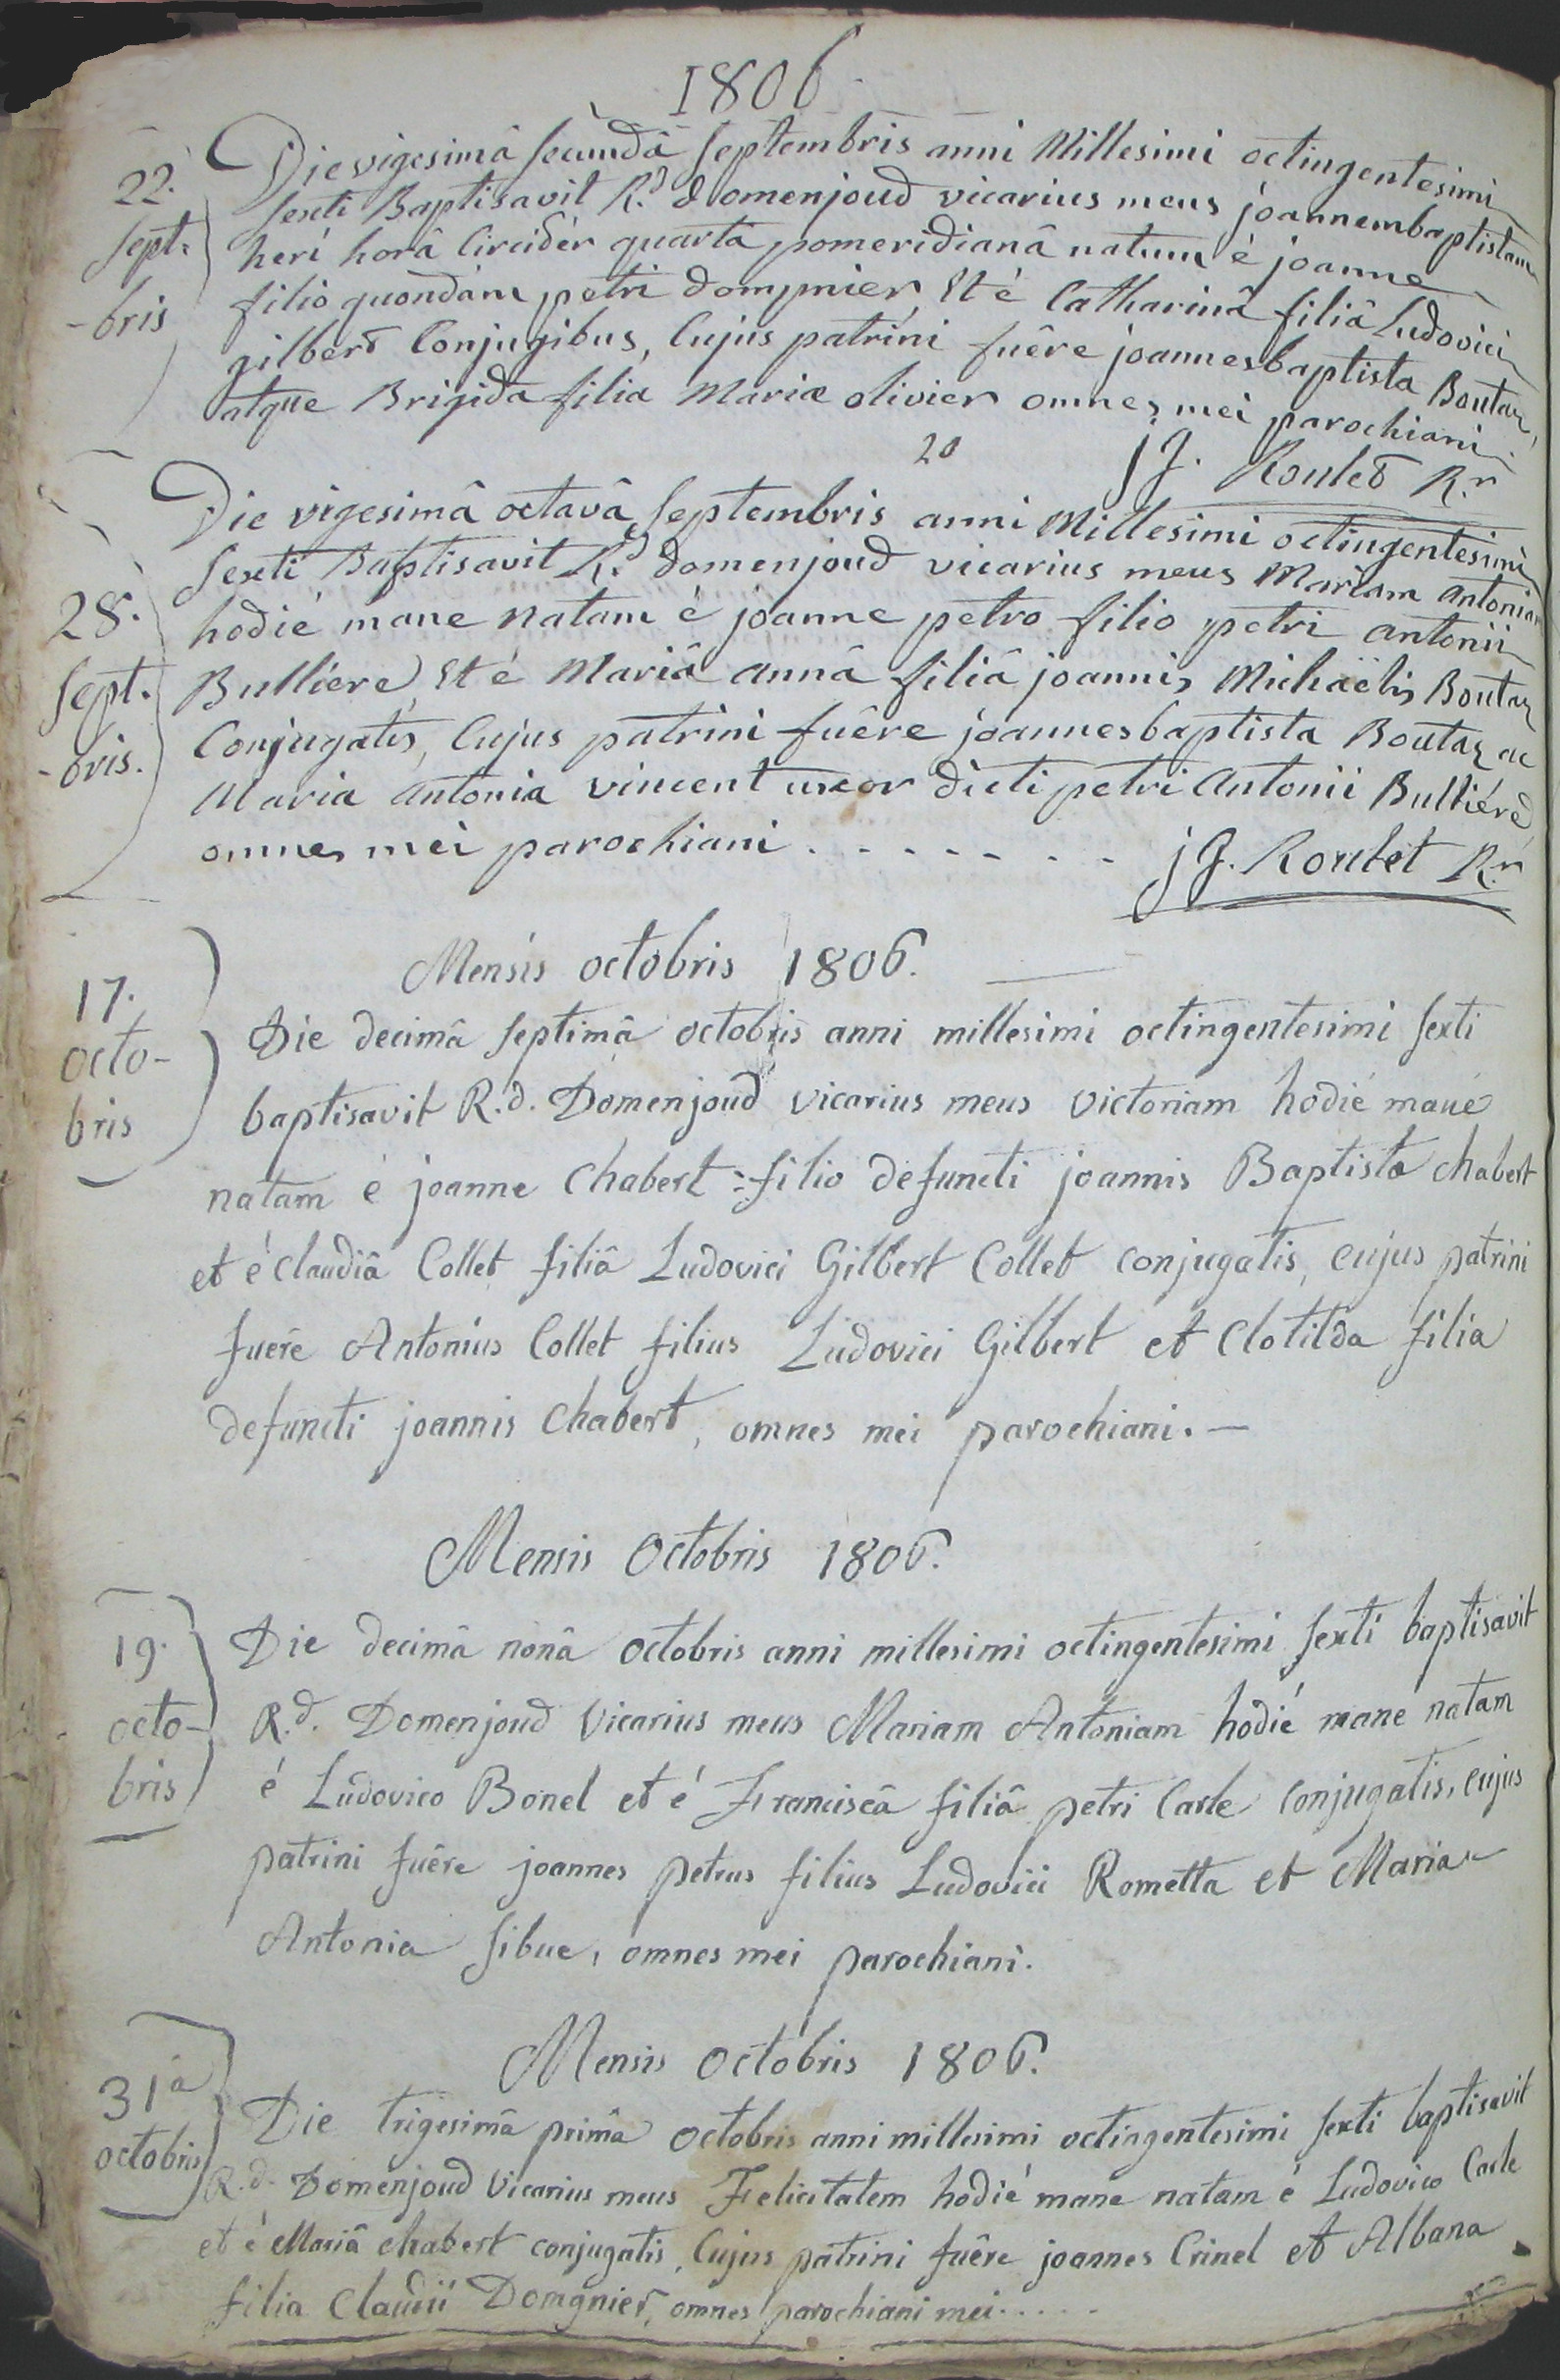 1806.
22.
Sept:
-bris
Die vigesimâ secundâ septembris anni Millesimi octingentesimi
sexti Baptisavit R.d domenjoud vicarius meus joannembaptistam
heri horâ Circiter quartâ pomeridianâ natum é joanne
filio quondam petri dompnier Et é Catharinâ filiâ Ludovici
gilbert Conjugibus, Cujus patrini fuêre joannesbaptista Boutaz,
atque Brigida filia Mariæ olivier omnes mei parochiani.
20
jJ. Roulet R.r
28.
Sept.
-bris.
Die vigesimâ octavâ septembris anni Millesimi octingentesimi
Sexti Baptisavit R.d domenjoud vicarius meus Mariam Antoniam
hodié mane natam é joanne petro filio petri antonii
Bulliere Et é Mariâ annâ filiâ joannis Michaëlis Boutaz
Conjugatis, Cujus patrini fuêre joannesbaptista Boutaz ac
Maria Antonia vincent uxor dicti petri Antonii Bulliére
omnes mei parochiani . - . - - - . -
jJ. Roulet R.r
Mensis octobris 1806.
17.
octo-
bris
Die decimâ septimâ octobris anni millesimi octingentesimi sexti
baptisavit R.d. Domenjoud vicarius meus victoriam hodié mané
natam é joanne Chabert filio defuncti joannis Baptista chabert
et é claudiâ Collet filiâ Ludovici Gilbert Collet conjugatis, cujus patrini
fuêre Antonius Collet filius Ludovici Gilbert et Clotilda filia
defuncti joannis Chabert, omnes mei parochiani. -
Mensis Octobris 1806.
19.
octo-
bris
Die decimâ nonâ octobris anni millesimi octingentesimi sexti baptisavit
R.d. Domenjoud Vicarius meus Mariam Antoniam hodié mane natam
é Ludovico Bonel et é Franciscâ filiâ petri Carle conjugatis, cujus
patrini fuêre joannes petrus filius Ludovici Rometta et Maria
Antonia Sibue, omnes mei parochiani.
Mensis octobris 1806.
31â
octobris
Die trigesimâ primâ octobris anni millesimi octingentesimi sexti baptisavit
R.d. Domenjoud Vicarius meus Felicitatem hodié mane natam é Ludovico Carle
et é Mariâ chabert conjugatis, Cujus patrini fuêre joannes Crinel et Albana
filia Claudii Domgnier, omnes parochiani mei.....